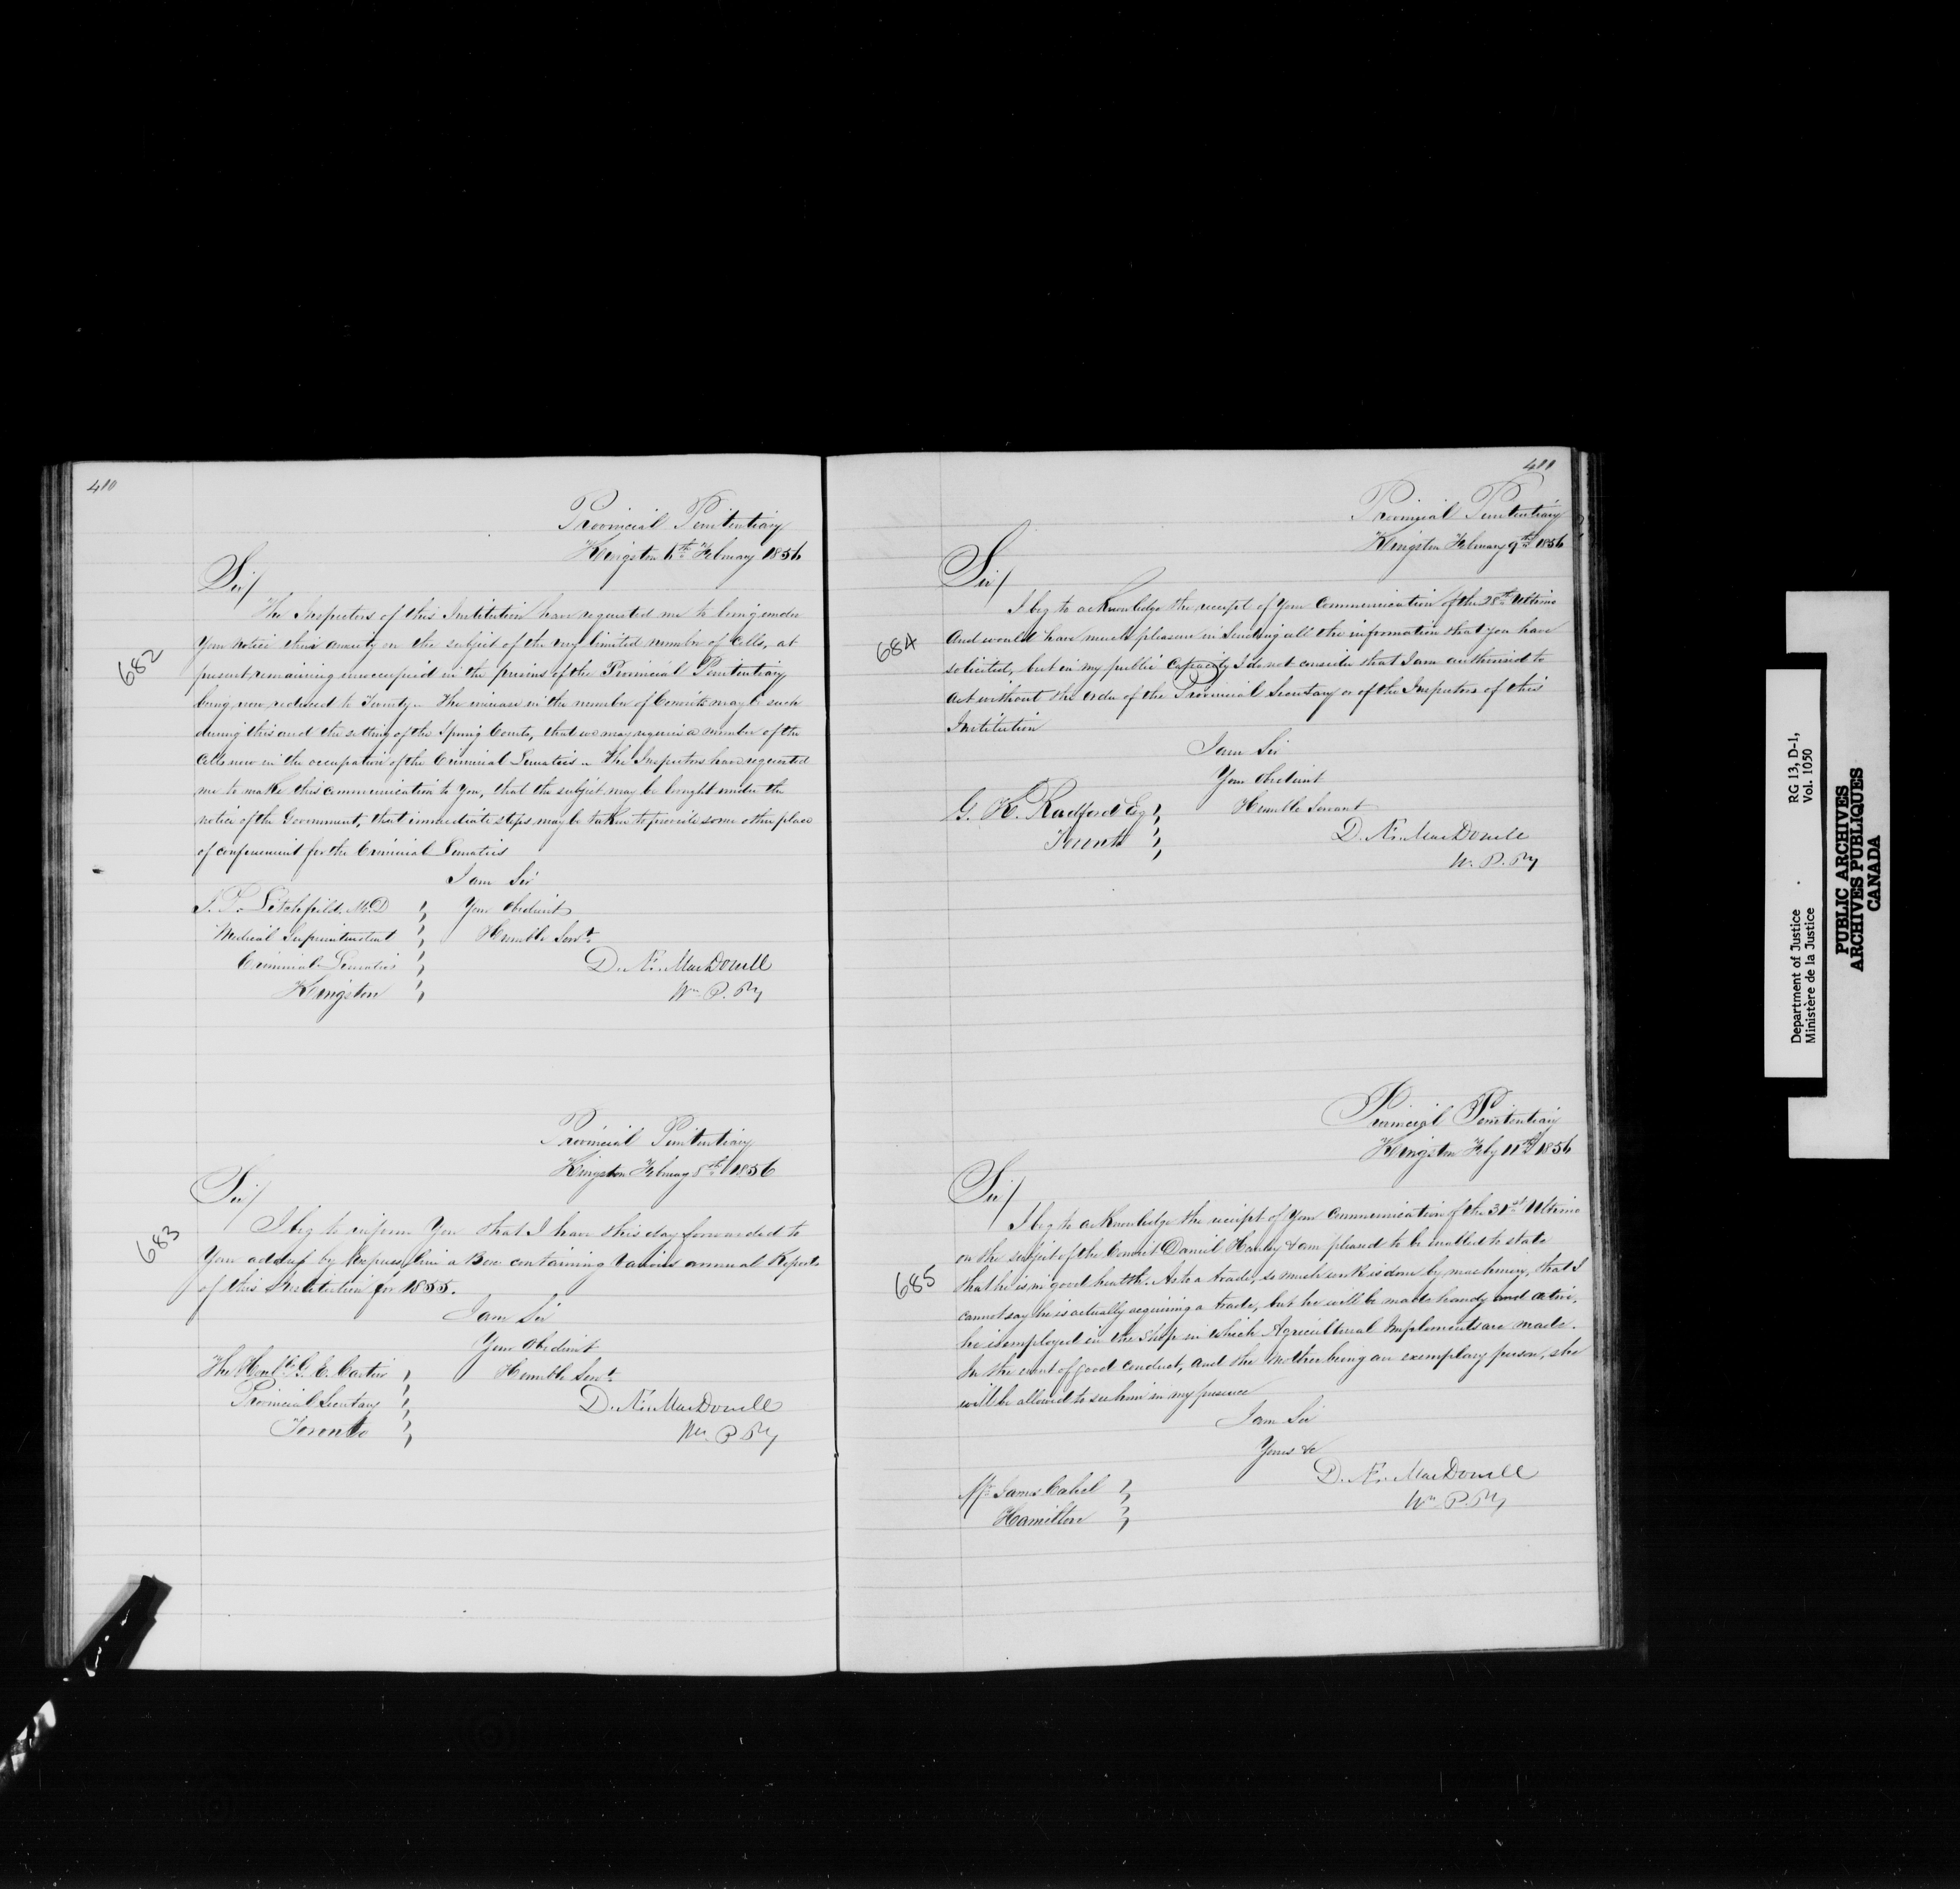 410
Provincial Penitentiary
Kingston 6th February 1856
Sir/
The Inspectors of this Institution have requested me to bring under
Your notice their anxiety on the subject of the very limited number of Cells, at
present remaining unoccupied in the prisons of the Provincial Penitentiary
being now reduced to Twenty. The increase in the number of Convicts may be such
during this and the sitting of the Spring Courts, that we may require a number of the
Cells now in the occupation of the Criminal Lunatics. The Inspectors have requested
me to make this communication to You, that the subject may be brought under the
notice of the Government, that immediate steps may be taken to provide some other place
of confinement for the Criminal Lunatics
I am Sir
Your Obedient
Humble Servt
D. Æ. MacDonell
Wn P. Py
J. P. Litchfield, M.D
Medical Superintendent
Criminal Lunatics
Kingston
682
Provincial Penitentiary
Kingston February 8th 1856
Sir/
I beg to inform You that I have this day forwarded to
Your address by Express line a Box containing Various annual Reports
of this Institution for 1855.
I am Sir
Your Obedient
Humble Servt
D. Æ. MacDonell
Wn P Py
The Honble G. E. Cartier
Provincial Secretary
Toronto
683
411
Provincial Penitentiary
Kingston February 9th 1856
Sir/
I beg to acknowledge the receipt of Your Communication of the 28th Ultimo
And would have much pleasure in sending all the information that you have
solicited, but in my public Capacity I do not consider that I am authorised to
act without the order of the Provincial Secretary or of the Inspectors of this
Institution
I am Sir
Your Obedient
Humble Servant
D. Æ. MacDonell
W. P. Py
G. H. Radford Esq
Toronto
684
Provincial Penitentiary
Kingston Feby 11th 1856
Sir/
I beg to acknowledge the receipt of Your Communication of the 31st Ultimo
on the subject of the Convict Daniel Hanley & am pleased to be enabled to state
that he is in good health. As to a trade, so much work is done by machinery, that I
cannot say he is actually acquiring a trade, but he will be made handy and active,
he is employed in the Shop in which Agricultural Implements are made.
In the event of good conduct, and the Mother being an exemplary person, she
will be allowed to see him in my presence
I am Sir
Yours &c
D. Æ. MacDonell
Wn P. Py
Mr James Cahel
Hamilton
685
Department of Justice
Ministère de la Justice
RG 13, D-1,
Vol. 1050
PUBLIC ARCHIVES
ARCHIVES PUBLIQUES
CANADA